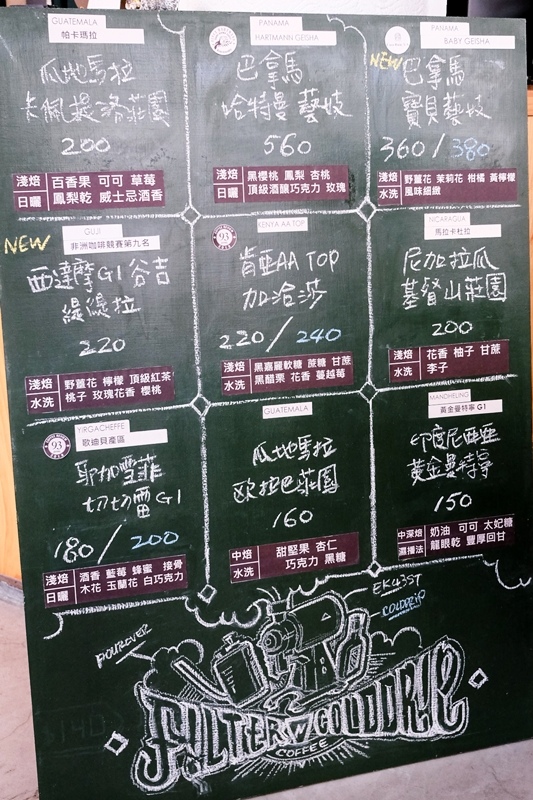 GUATEMALA
帕卡瑪拉
瓜地馬拉
卡佩提洛莊園
200
淺焙 百香果 可可 草莓
日曬 鳳梨乾 威士忌酒香
PANAMA
HARTMANN GEISHA
巴拿馬
哈特曼藝妓
560
淺焙 黑櫻桃 鳳梨 杏桃
日曬 頂級酒釀巧克力 玫瑰
PANAMA
BABY GEISHA
NEW
巴拿馬
寶貝藝妓
360/380
淺焙 野薑花 茉莉花 柑橘 黃檸檬
水洗 風味細緻
NEW
GUJI
非洲咖啡競賽第九名
西達摩G1谷吉
緹緹拉
220
淺焙 野薑花 檸檬 頂級紅茶
水洗 桃子 玫瑰花香 櫻桃
93
KENYA AA TOP
肯亞AA TOP
加洽莎
220/240
淺焙 黑嘉麗軟糖 蔗糖 甘蔗
水洗 黑醋栗 花香 蔓越莓
NICARAGUA
馬拉卡杜拉
尼加拉瓜
基督山莊園
200
淺焙 花香 柚子 甘蔗
水洗 李子
93
YIRGACHEFFE
歌迪貝產區
耶加雪菲
切切雷G1
180/200
淺焙 酒香 藍莓 蜂蜜 接骨
日曬 木花 玉蘭花 白巧克力
GUATEMALA
瓜地馬拉
歐拉巴莊園
160
中焙 甜堅果 杏仁
水洗 巧克力 黑糖
MANDHELING
黃金曼特寧 G1
印度尼西亞
黃金曼特寧
150
中深焙 奶油 可可 太妃糖
濕播法 龍眼乾 豐厚回甘
EK43ST
COLDDRIP
POUROVER
FILTER N COLDDRIP
COFFEE